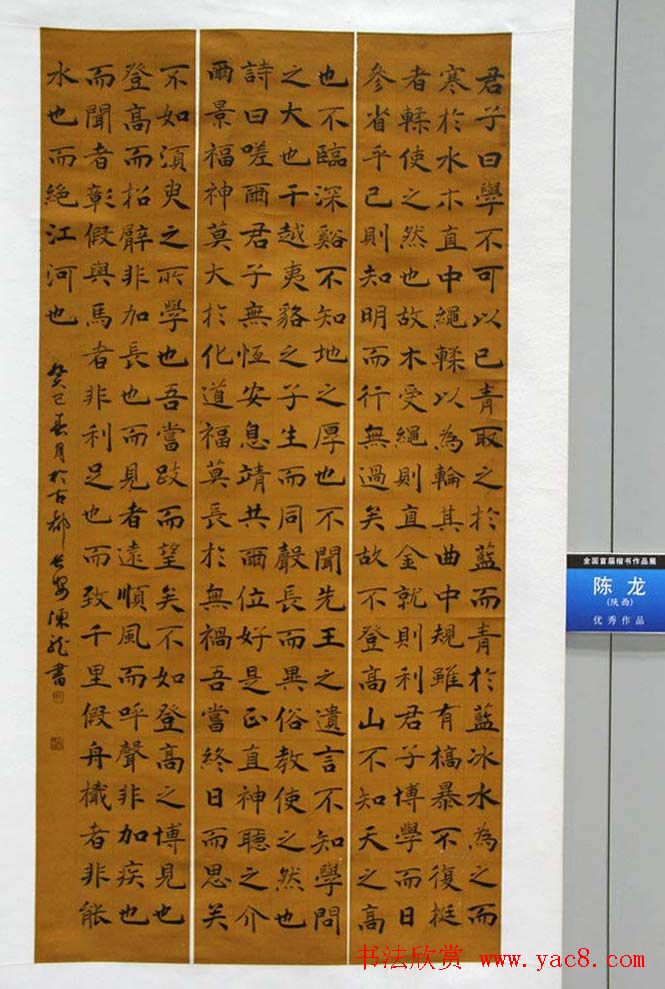 君子曰學不可以已青取之於藍而青於藍冰水為之而
寒於水木直中繩輮以為輪其曲中規雖有槁暴不復挺
者輮使之然也故木受繩則直金就則利君子博學而日
參省乎己則知明而行無過矣故不登高山不知天之高
也不臨深谿不知地之厚也不聞先王之遺言不知學問
之大也干越夷貉之子生而同聲長而異俗教使之然也
詩曰嗟爾君子無恆安息靖共爾位好是正直神聽之介
爾景福神莫大於化道福莫長於無禍吾嘗終日而思矣
不如須臾之所學也吾嘗跂而望矣不如登高之博見也
登高而招臂非加長也而見者遠順風而呼聲非加疾也
而聞者彰假與馬者非利足也而致千里假舟檝者非能
水也而絕江河也
癸巳春月於古都長安陳龍書
全国首届楷书作品展
陈龙
(陕西)
优秀作品
书法欣赏 www.yac8.com